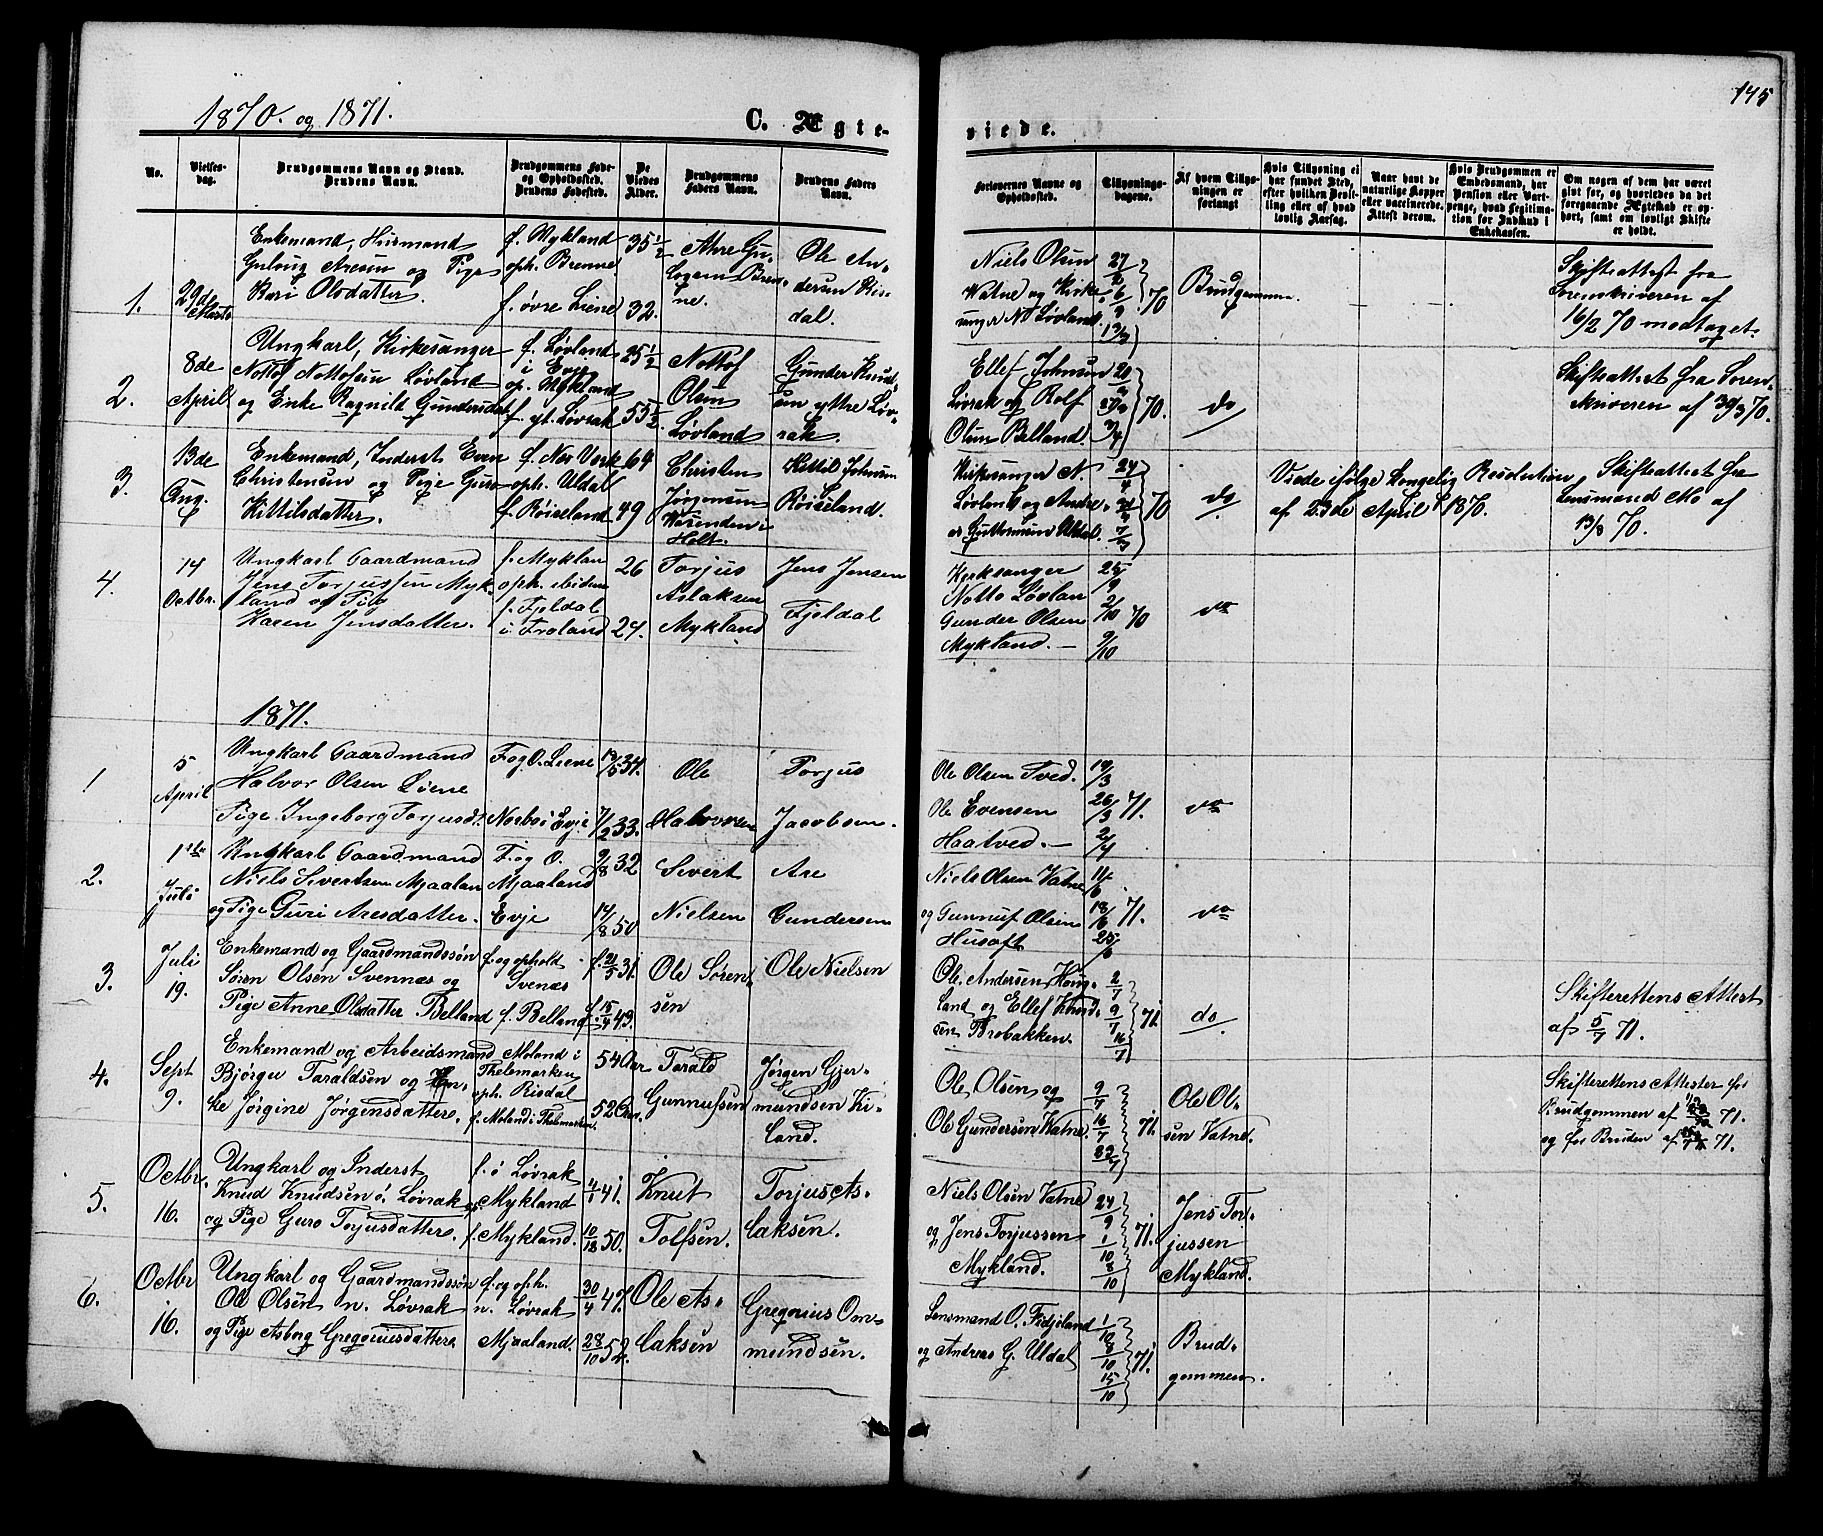 1870. og 1871.
C. Ægte-
viede.
145
No.
Vielses-
dag.
Brudgommens Navn og Stand.
Brudens Navn.
Brudgommens Føde-
og Opholdssted.
Brudens Fødested.
De
Viedes
Alder.
Brudgommens
Faders Navn.
Brudens Faders
Navn.
Forlovernes Navne og
Opholdssted.
Tillysnings-
dagene.
Af hvem Tillys-
ningen er
forlangt
Hvis Tillysning ei
har fundet Sted,
efter hvilken Bevil-
ling eller af hvad
lovlig Aarsag.
Naar havt de
naturlige Kopper
eller vaccinerede.
Attest derom.
Hvis Brudgommen er
Embedsmand, har
Pension eller Vart-
penge, hvad Legitima-
tion for Indskud i
Enkekassen.
Om nogen af dem har været
gift før, og hvorledes da det
foregaaende Ægteskab er op-
hørt, samt om lovligt Skifte
er holdt.
1.
29de
Marts
Enkemand, Husmand
Guloug Aresen og Pige
Kari Olsdatter.
f. Mykland
oph. Brenne
f. øvre Liene
35 1/2
32.
Are Gu-
logsen Bren-
ne.
Ole An-
dersen Ris-
dal.
Niels Olsen
Vatne og Kirke-
sanger N. Løvland.
27/2 6/3 13/3 70
Brudgommen.
Skifteattest fra
Sorenskriveren af
16/2 70 modtaget.
2.
8de
April
Ungkarl, Kirkesanger
Nottof Nottofsen Løvland
og Enke Ragnild Gundersdat
f. Løvland
i Evje
op. Mykland
f. yt. Løvrak
25 1/2
55 1/2
Nottof
Olsen
Løvland
Gunder Knud-
sen yttre Løv-
rak.
Ellef Johnsen
Løvrak og Rolf
Olsen Belland.
20/3 27/3 3/4 70.
do
Skifteattest fra Soren-
skriveren af 30/3 70.
3.
13de
Aug.
Enkemand, Inderst Even
Christensen og Pige Guro
Kittilsdatter.
f. Nes Verk
oph. Uldal
f. Røiseland
64
49
Christen
Jørgensen
Holt.
Kittil Johnsen
Røiseland.
Kirkesanger N.
Løvland og Andre-
as Guttormsen Uldal.
24/4 70
do
Viede ifølge Kongelig Resolution
af 23de April 1870.
Skifteattest fra
Lensmand Mo af
13/8 70.
4.
14
Octbr.
Ungkarl Gaardmand
Jens Torjussen Myk-
land og Pige
Karen Jensdatter.
f. Myklan
oph. ibidem
f. Fjeldal
i Froland
26
24.
Torjus
Aslaksen
Mykland
Jens Jensen
Fjeldal
Kyrksanger
Notto Løvlan
Gunder Olsen
Mykland.
25/9 2/10 9/10 70
do
1871.
1
5
April
Ungkarl Gaardmand
Halvor Olsen Liene
Pige Ingeborg Torjusd.
F. og O. Liene
Norbø i Evje
19/5 34.
7/2 33.
Ole
Halvorsen
Torjus
Jacobsen.
Ole Olsen Tved.
Ole Evensen
Haatved.
19/3 26/3 2/4 71.
do
2.
1ste
Juli
Ungkarl Gaardmand
Niels Sivertsen Mjaalan
og Pige Guri Aresdatter.
F. og O.
Mjaaland
Evje
9/8 32
14/8 50
Sivert
Nielsen
Are
Gundersen
Niels Olsen Vatne
og Gunnuf Olsen
Husaft
11/6 18/6 25/6 71.
do
3.
Juli
19.
Enkemand og Gaardmandssøn
Søren Olsen Svennæs og
Pige Anne Olsdatter Belland
f. og opholdt
Svenæs
f. Belland
f. 21/5 31.
f. 15/4 43.
Ole Søren-
sen
Ole Nielsen
Ole Andersen Houg-
land og Ellef Knud-
sen Brobakken.
2/7 9/7 16/7 71.
do
Skifterettens Attest
af 5/7 71.
4.
Sept
9.
Enkemand og Arbeidsmand
Bjørgu Taraldsen og En-
ke Jørgine Jørgensdatter.
Moland i
Thelemarken
oph. Risdal
f. Moland i Thelemarken.
54 Aar
52 Aar.
Tarald
Gunnufsen
Jørgen Gjer-
mundsen Ki-
land.
Ole Olsen og
Ole Gundersen Vatne
9/7 16/7 23/7 71.
Ole Ol-
sen Vatne
Skifterettens Attester for
Brudgommen af 71.
og for Bruden af 71.
5.
Octbr.
16.
Ungkarl og Inderst
Knud Knudsen ø. Løvrak
og Pige Guro Torjusdatter.
f. ø Løvrak
op. Mykland
f. Mykland.
4/1 41.
10/12 50.
Knut
Tolfsen.
Torjus As-
laksen.
Niels Olsen Vatne
og Jens Torjussen
Mykland.
24/9 1/10 8/10 71.
Jens Tor-
jussen
Mykland.
6.
Octbr
16.
Ungkarl og Gaardmandssøn
Ole Olsen n. Løvrak
og Pige Asborg Gregoriusdatter
f. og oph.
n. Løvrak
Mjaaland.
30/4 47.
28/10 52.
Ole As-
laksen
Gregorius Om-
mundsen.
Lensmand O. Fidjeland
og Andreas G. Uldal
1/10 8/10 15/10 71.
Brud-
gommen.